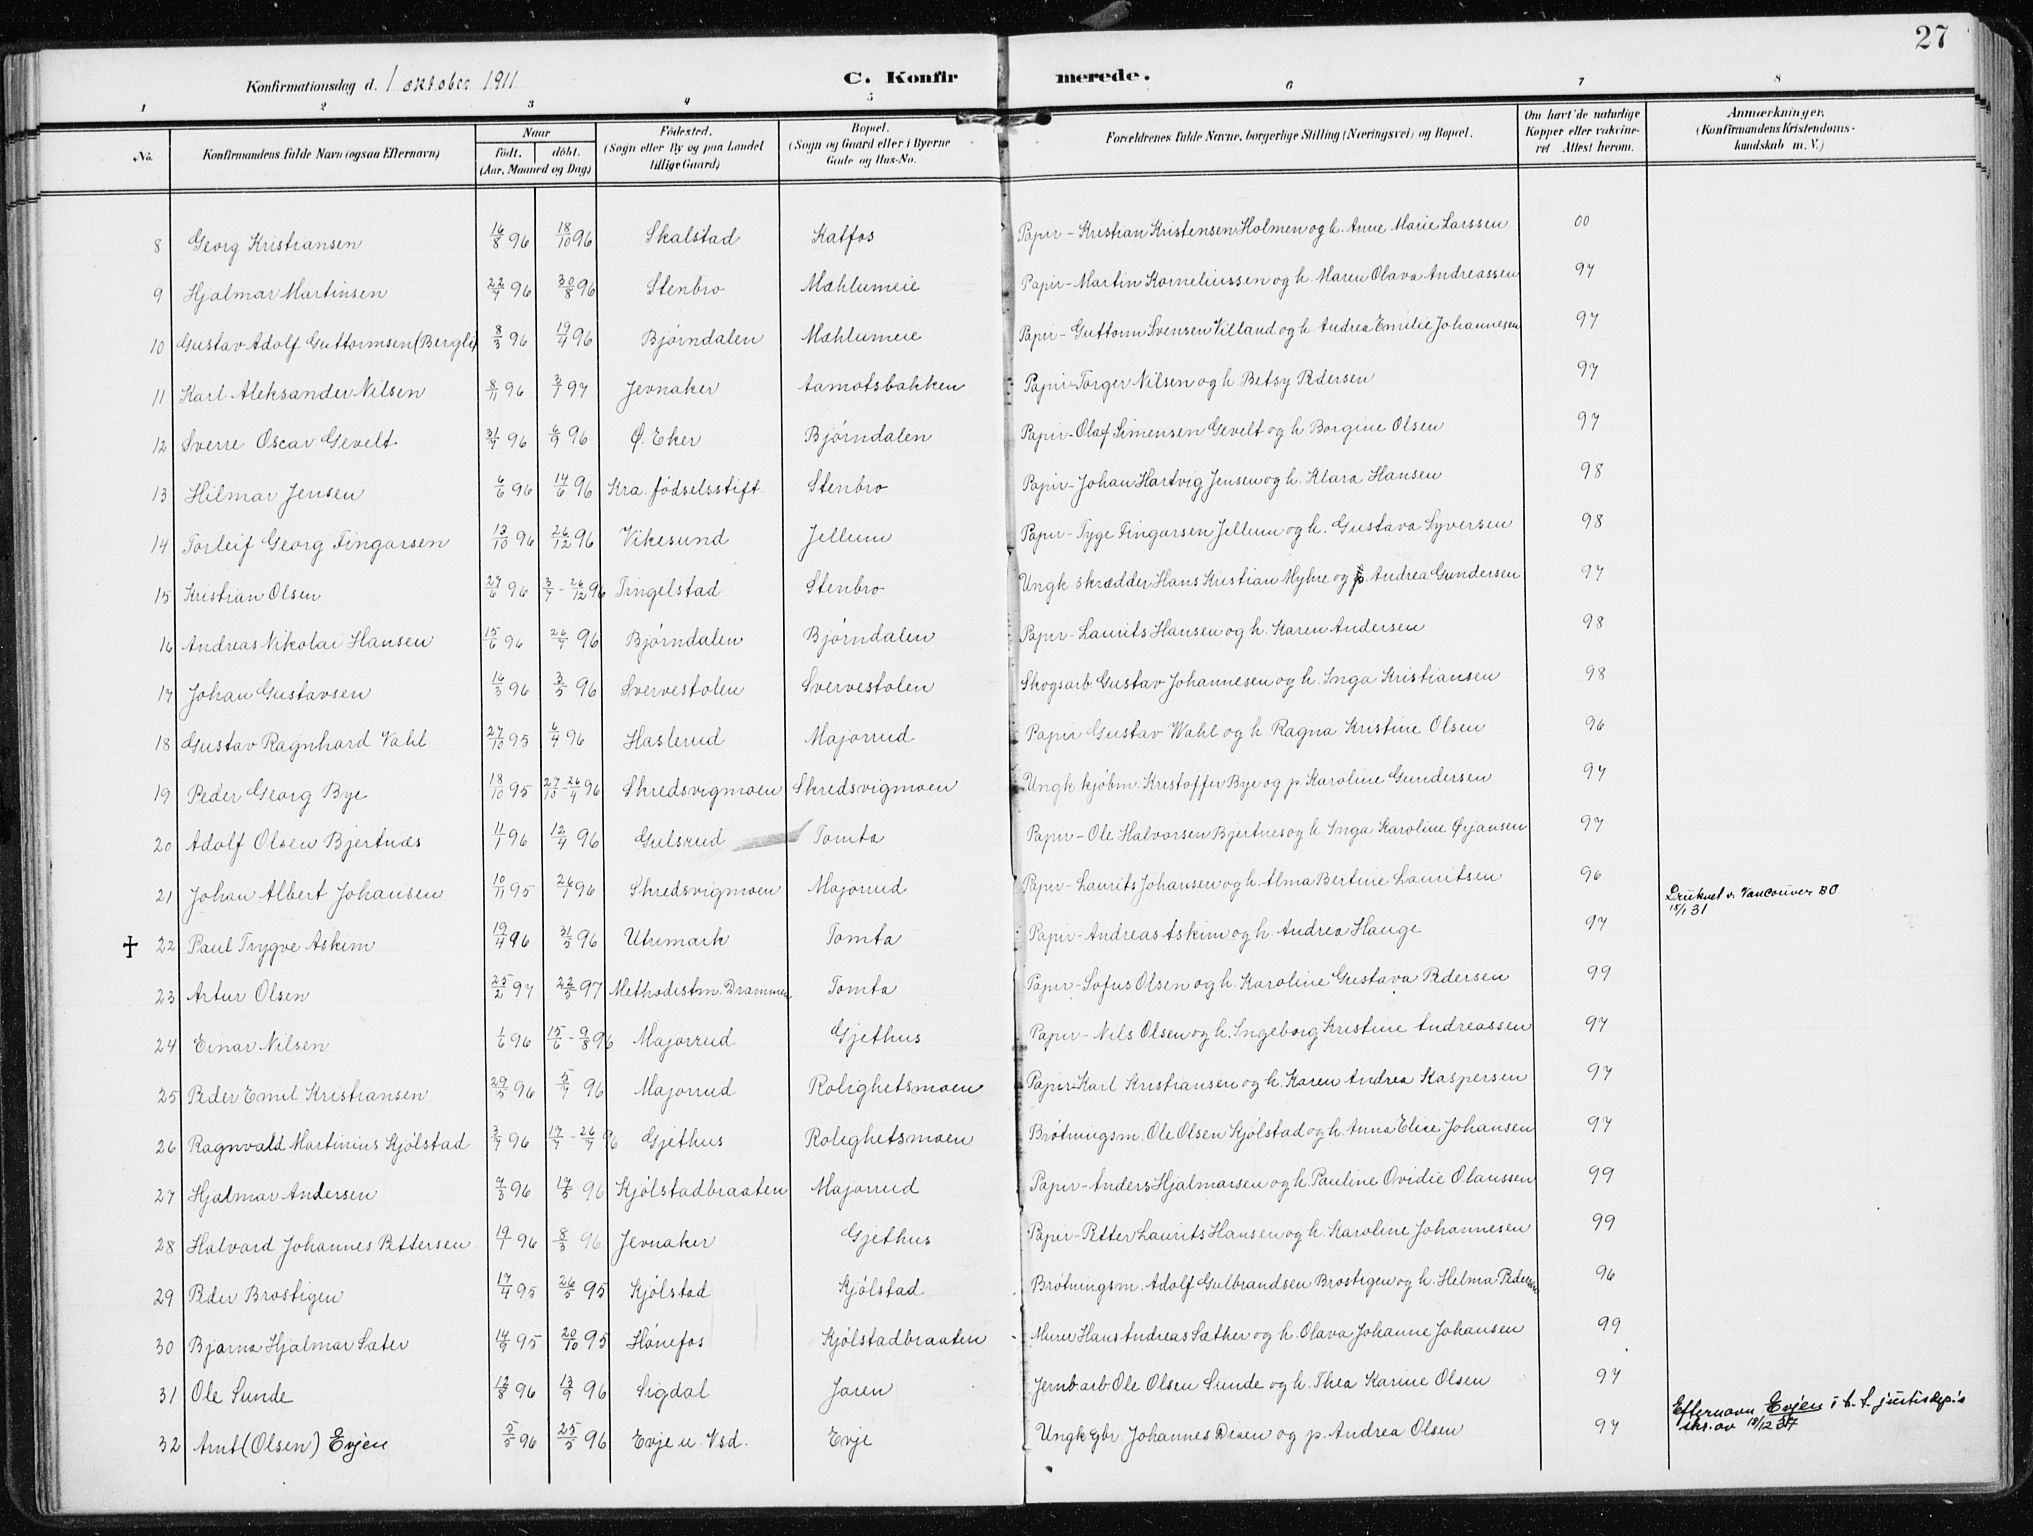 27
Konfirmationsdag d. 1 oktober 1911
C. Konfirmerede.
1 2 3 4 5 6 7 8
No. Konfirmandens fulde Navn (ogsaa Efternavn). Naar født. døbt. (Aar, Maaned og Dag) Fødested. (Sogn eller By og paa Landet tillige Gaard) Bopæl. (Sogn og Gaard eller i Byerne Gade og Hus-No. Forældrenes fulde Navne, borgerlige Stilling (Næringsvei) og Bopæl. Om havt de naturlige Kopper eller vakcineret Attest herom. Anmærkninger. (Konfirmandens Kristendomskundskab m. V.)
8 Georg Kristiansen 16/8 96 18/10 96 Skalstad Katfos Papir- Kristian Kristensen Holmen og h. Anne Marie Larssen 00
9 Hjalmar Martinsen 22/7 96 30/8 96 Stenbro Mæhlumeie Papir- Martin Korneliussen og h. Maren Olava Andreassen 97
10 Gustav Adolf Guttormsen (Bergli) 8/3 96 19/4 96 Bjørndalen Mæhlumeie Papir- Guttorm Svensen Villand og h. Andrea Emilie Johannesen 97
11 Karl Aleksander Nilsen 8/11 96 3/1 97 Jevnaker Aamotsbakken Papir- Torger Nilsen og h. Betsy Pedersen 97
12 Sverre Oscar Gevelt 31/7 96 6/9 96 Ø. Eker Bjørndalen Papir- Olaf Simensen Gevelt og h. Borgine Olsen 97
13 Hilmar Jensen 6/6 96 14/6 96 Kra. fødselsstift. Stenbro Papir- Johan Hartvig Jensen og h. Klara Hansen 98
14 Torleif Georg Fingarsen 13/10 96 26/12 96 Vikesund Jellum Papir- Tyge Fingarsen Jellum og h. Gustava Syversen 98
15 Kristian Olsen 27/6 96 3/7 - 26/12 96 Tingelstad Stenbro Ungk skrædder Hans Kristian Myhre og p. Andrea Gundersen 97
16 Andreas Nikolai Hansen 15/6 96 26/7 96 Bjørndalen Bjørndalen Papir- Laurits Hansen og h. Karen Andersen 98
17 Johan Gustavsen 16/3 96 3/5 96 Svervestolen Svervestolen Skogsarb Gustav Johannesen og h. Inga Kristiansen 98
18 Gustav Ragnhard Vahl 27/10 95 6/4 96 Haslerud Majorrud Papir Gustav Wahl og h Ragna Kristine Olsen 96
19 Peder Georg Bye 18/10 95 27/10 - 26/4 96 Skredsvigmoen Skredsvigmoen Ungk kjøbm. Kristoffer Bye og p Karoline Gundersen 97
20 Adolf Olsen Bjertnæs 11/1 96 12/4 96 Gulsrud Tomta Papir- Ole Halvorsen Bjertnes og h. Inga Karoline Ørjansen 97
21 Johan Albert Johansen 10/11 95 26/1 96 Skredsvigmoen Majorrud Papir- Laurits Johansen og h. Alma Bertine Lauritsen 96 Druknet v. Vancouver BC
18/1 31
† 22 Paul Trygve Askim 19/4 96 31/5 96 Utremark Tomta Papir- Andreas Askim og h Andrea Hauge 97
23 Artur Olsen 25/2 97 22/5 97 Methodistm. Drammen Tomta Papir- Sofus Olsen og h. Karoline Gustava Pedersen 99
24 Einar Nilsen 1/6 96 15/6 - 9/8 96 Majorrud Gjethus Papir- Nils Olsen og h. Ingeborg Kristine Andreassen 97
25 Peder Emil Kristiansen 29/5 96 5/7 96 Majorrud Rolighetsmoen Papir- Karl Kristiansen og h. Karen Andrea Kaspersen 97
26 Ragnvald Martinius Kjølstad 3/7 96 17/7 - 26/7 96 Gjethus Rolighetsmoen Brøtningsm. Ole Olsen Kjølstad og h. Anna Elise Johansen 97
27 Hjalmar Andersen 7/3 96 17/5 96 Kjølstadbraaten Majorrud Papir- Anders Hjalmarsen og h. Pauline Ovidie Olaussen 99
28 Halvard Johannes Pettersen 19/1 96 8/3 96 Jevnaker Gjethus Papir- Petter Laurits Hansen og h. Karoline Johannesen 99
29 Peder Brostigen 17/4 95 26/5 95 Kjølstad Kjølstad Brøtningsm. Adolf Gulbrandsen Brostigen og h. Helma Pedersen 96
30 Bjarne Hjalmar Sæter 14/9 95 20/10 95 Hønefos Kjølstadbraaten Murer Hans Andreas Sæther og h. Olava Johanne Johansen 99
31 Ole Sunde 12/8 96 13/9 96 Sigdal Jaren Jernb arb Ole Olsen Sunde og h. Thea Karine Olsen 97
32 Arnt (Olsen) Evjen 5/5 96 25/5 96 Evje u. Vsd. Evje Ungk gbr. Johannes Deen og p. Andrea Olsen 97 Efternavn Evjen i h. t. justisdep.s
skr. av 18/12 37